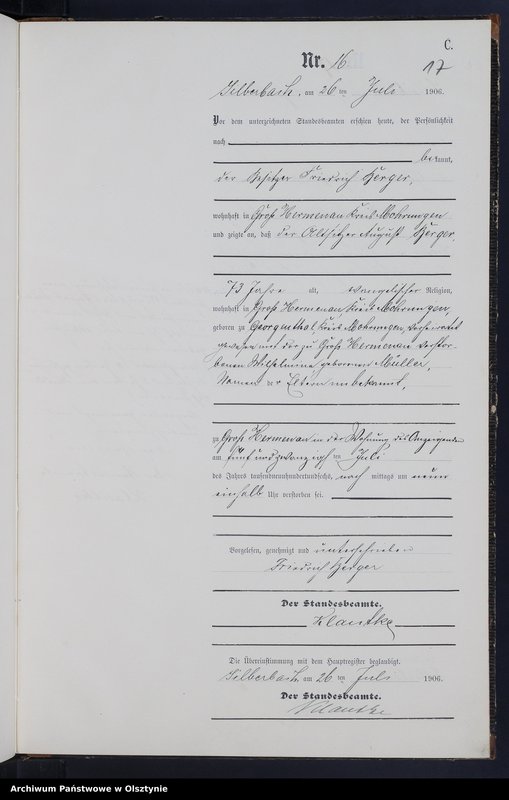 C.
Nr. 16
17
Silberbach, am 26 ten Juli 1906.
Vor dem unterzeichneten Standesbeamten erschien heute, der Persönlichkeit
nach
bekannt,
der Besitzer Friedrich Herger,
wohnhaft in Groß Hermenau Kreis Mohrungen
und zeigte an, daß der Altsitzer August Herger,
73 Jahre alt, evangelischer Religion,
wohnhaft in Groß Hermenau, Kreis Mohrungen,
geboren zu Georgenthal, Kreis Mohrungen, verheiratet
gewesen mit der zu Groß Hermenau verstor-
benen Wilhelmine geborenen Müller,
Namen der Eltern unbekannt,
zu Groß Hermenau in der Wohnung des Anzeigenden
am fünf und zwanzigsten Juli
des Jahres tausendneunhundertundsechs, nach mittags um neun
einhalb Uhr verstorben sei.
Vorgelesen, genehmigt und unterschrieben
Friedrich Herger
Der Standesbeamte.
Klautke
Die Übereinstimmung mit dem Hauptregister beglaubigt.
Silberbach, am 26 ten Juli 1906.
Der Standesbeamte.
Klautke
Archiwum Państwowe w Olsztynie